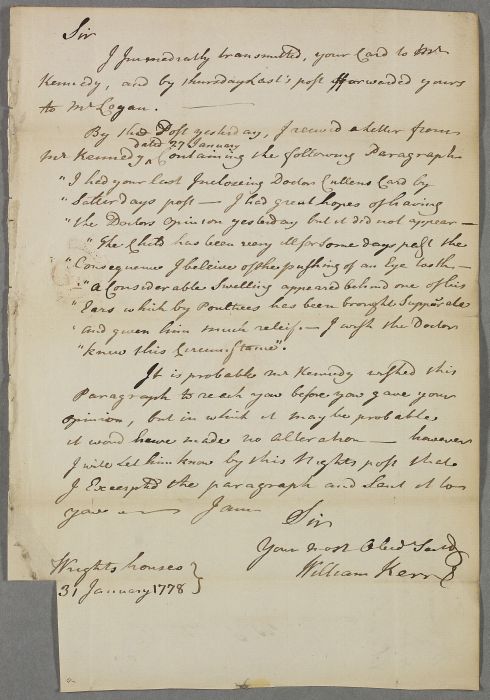 Sir
I Immediatly transmitted, your Card to Mr
Kennedy, and by thursday Last's post fforwarded yours
to Mr Logan.
By the Post yesterday, I receivd a letter from
dated 27 January
mr Kennedy ^ Containing the following Paragraph
"I had your last Inclosing Doctor Cullens Card by
"Satturdays post — I had great hopes of having
"the Doctors opinion yesterday but it did not appear —
"The Child has been very ill for some days past the
"Consequence I beleive of the pushing of an Eye tooth —
"a Considerable Swelling appeared behind one of his
"Ears which by Poultices has been brought to Suppurate
"and given him much releif. — I wish the Doctor
"knew this Circumstance".
It is probable mr Kennedy wished this
Paragraph to reach you before you gave your
opinion, but in which it may be probable
it woud have made no alteration — however
I will Let him know by this Nights post that
I Excerpted the paragraph and Sent it to
you I am
Sir
Your most Obed Servt
William Kerr
Wrights houses
31 January 1778